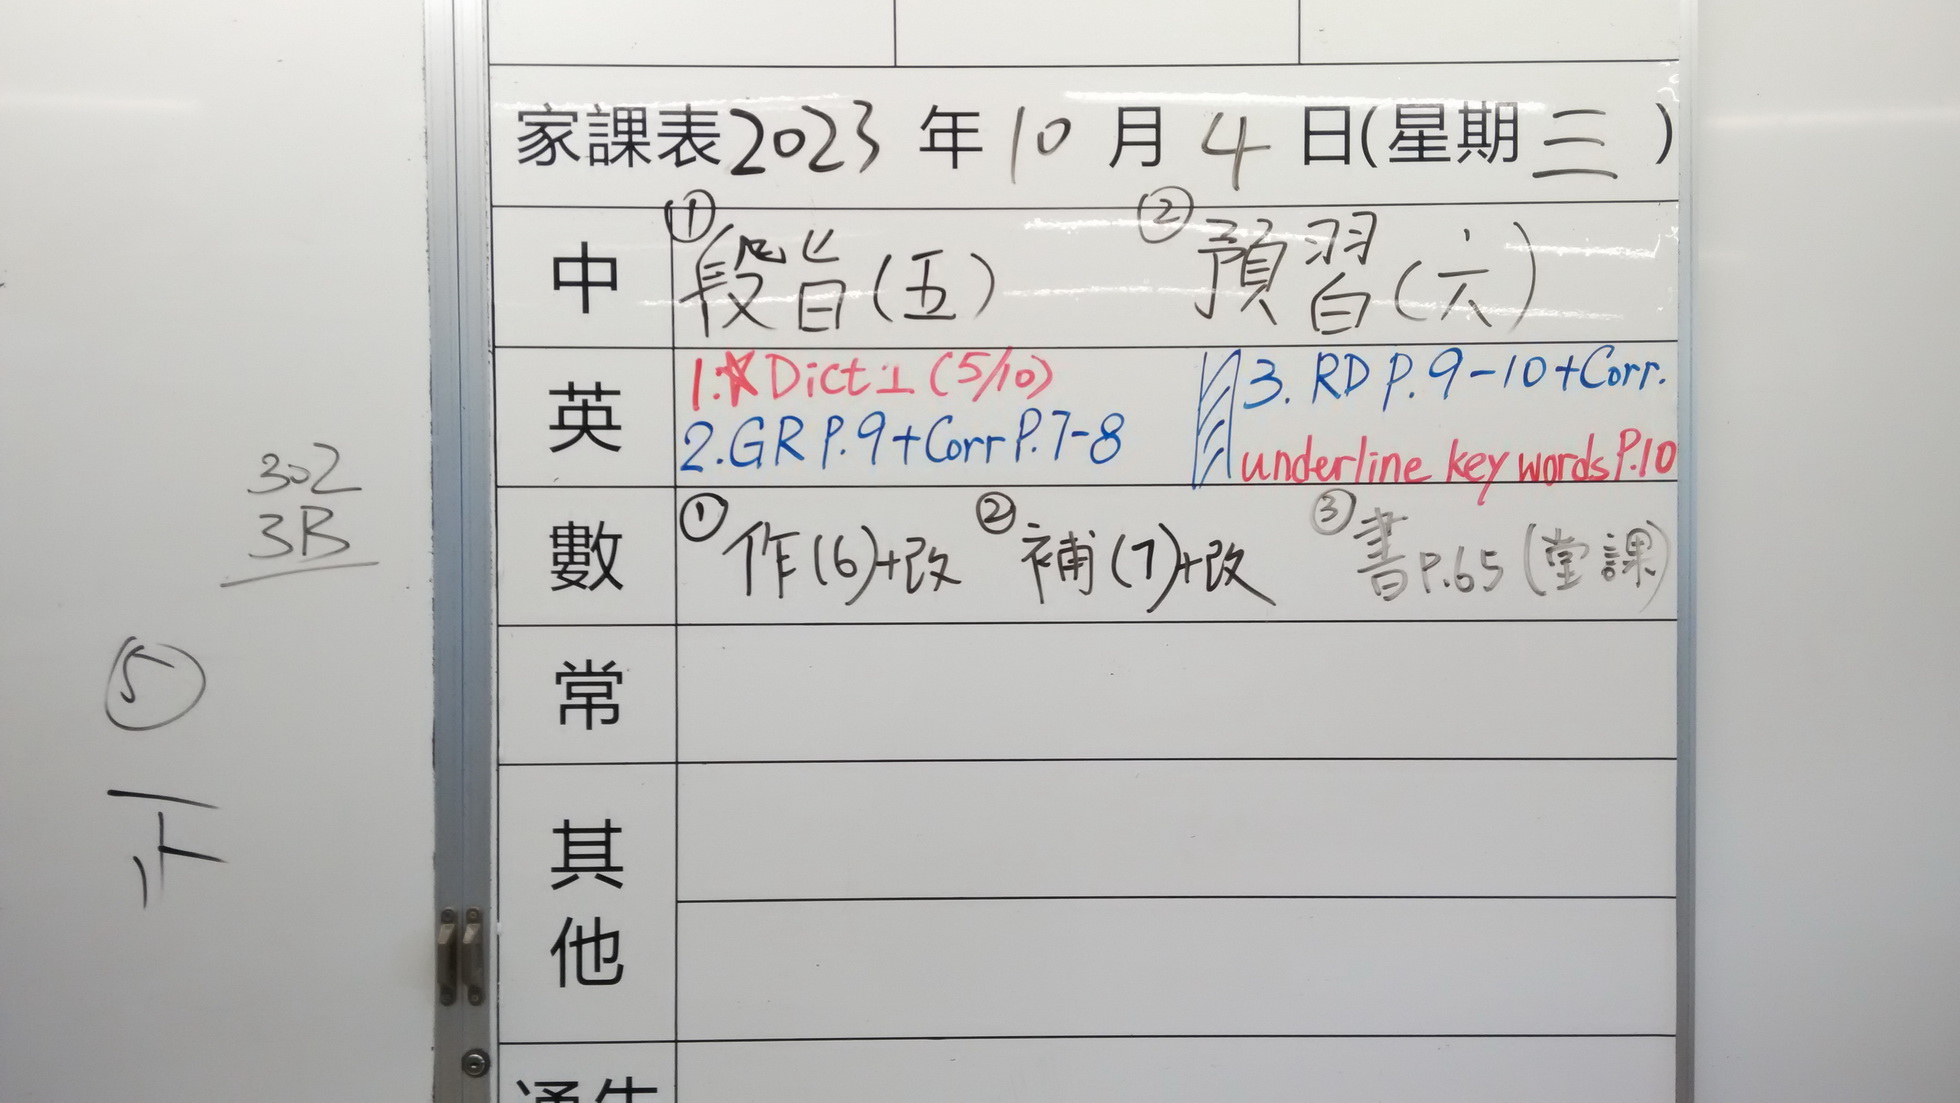 家課表2023年10月4日(星期三)
中 ①段旨(五) ②預習(六)
英 1.☆Dict 1 (5/10) 3. RD P.9-10+Corr.
2.GR P.9+Corr P.7-8 underline key words P.10
數 ①作(6)+改 ②補(7)+改 ③書P.65(堂課)
常
其
他
302
3B
⑤